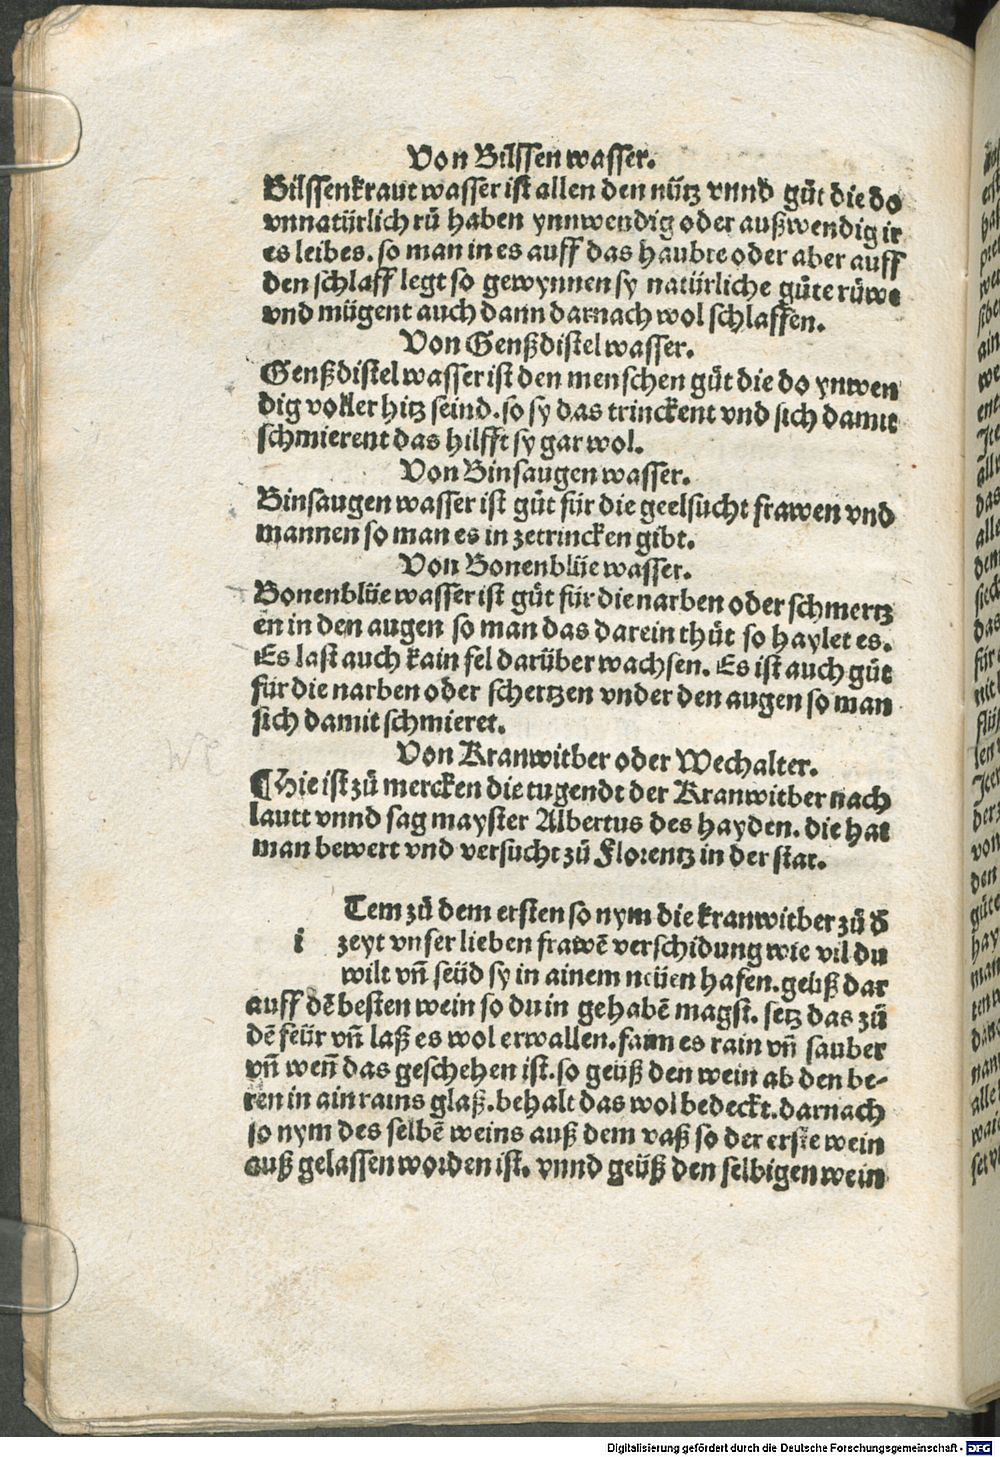 Von Bilssen wasser.
Bilssenkraut wasser ist allen den nütz vnnd gůt die do
vnnatürlich rů haben ynnwendig oder außwendig ir
es leibes. so man in es auff das haubte oder aber auff
den schlaff legt so gewynnen sy natürliche gůte růwe
vnd mügent auch dann darnach wol schlaffen.
Von Genßdistel wasser.
Genßdistel wasser ist den menschen gůt die do ynwen
dig voller hitz seind. so sy das trinckent vnd sich damit
schmierent das hilfft sy gar wol.
Von Binsaugen wasser.
Binsaugen wasser ist gůt für die geelsucht frawen vnd
mannen so man es in zetrincken gibt.
Von Bonenblüe wasser.
Bonenblüe wasser ist gůt für die narben oder schmertz
en in den augen so man das darein thůt so haylet es.
Es last auch kain fel darüber wachsen. Es ist auch gůt
für die narben oder schertzen vnder den augen so man
sich damit schmieret.
Von Kranwitber oder Wechalter.
¶ Hie ist zů mercken die tugendt der Kranwitber nach
lautt vnnd sag mayster Albertus des hayden. die hat
man bewert vnd versucht zů Florentz in der stat.
i Tem zů dem ersten so nym die kranwitber zů đ
zeyt vnser lieben frawē verschidung wie vil du
wilt vñ seüd sy in ainem neüen hafen. geüß dar
auff dē besten wein so du in gehabē magst. setz das zů
dē feür vñ laß es wol erwallen. faim es rain vñ sauber
vñ weñ das geschehen ist. so geüß den wein ab den be-
ren in ain rains glaß. behalt das wol bedeckt. darnach
so nym des selbē weins auß dem vaß so der erste wein
auß gelassen worden ist. vnnd geüß den selbigen wein
Digitalisierung gefördert durch die Deutsche Forschungsgemeinschaft - DFG